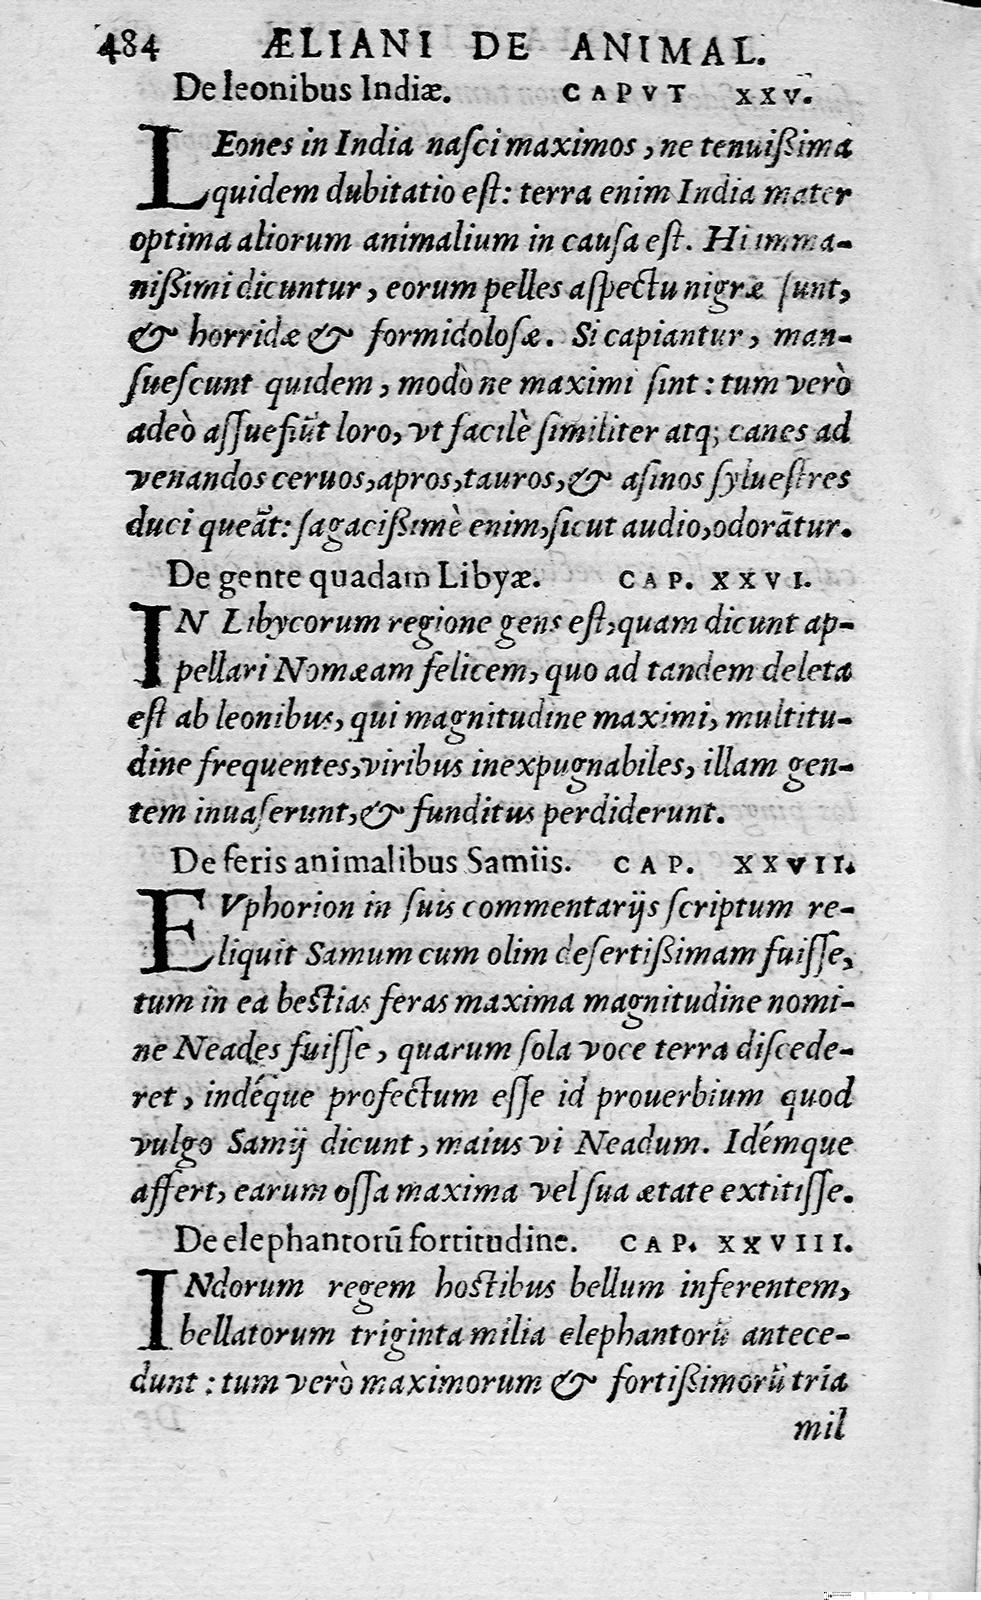 484 ÆLIANI DE ANIMAL.
De leonibus Indiæ. CAPVT XXV.
LEones in India nasci maximos, ne tenuißima
quidem dubitatio est: terra enim India mater
optima aliorum animalium in causa est. Hi imma-
nißimi dicuntur, eorum pelles aspectu nigræ sunt,
& horridæ & formidolosæ. Si capiantur, man-
suescunt quidem, modò ne maximi sint: tum verò
adeò assuefiūt loro, vt facilè similiter atq; canes ad
venandos ceruos, apros, tauros, & asinos syluestres
duci queāt: sagacißimè enim, sicut audio, odorātur.
De gente quadam Libyæ. CAP. XXVI.
IN Libycorum regione gens est, quam dicunt ap-
pellari Nomæam felicem, quo ad tandem deleta
est ab leonibus, qui magnitudine maximi, multitu-
dine frequentes, viribus inexpugnabiles, illam gen-
tem inuaserunt, & funditus perdiderunt.
De feris animalibus Samiis. CAP. XXVII.
EVphorion in suis commentarijs scriptum re-
liquit Samum cum olim desertißimam fuisse,
tum in ea bestias feras maxima magnitudine nomi-
ne Neades fuisse, quarum sola voce terra discede-
ret, indéque profectum esse id prouerbium quod
vulgo Samij dicunt, maius vi Neadum. Idémque
affert, earum ossa maxima vel sua ætate extitisse.
De elephantorū fortitudine. CAP. XXVIII.
INdorum regem hostibus bellum inferentem,
bellatorum triginta milia elephantorū antece-
dunt: tum verò maximorum & fortißimorū tria
mil